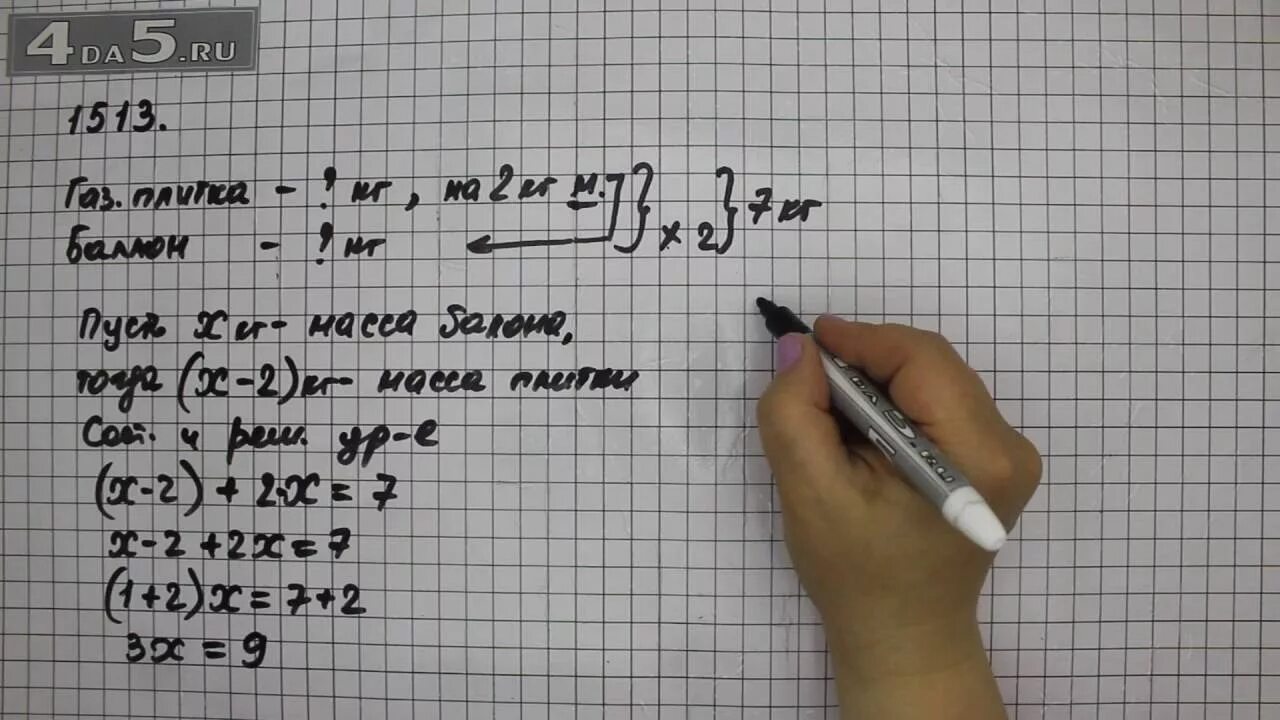 4DA5.RU
1513.
Газ. плитка - ? кг, на 2 кг м. } × 2 } 7 кг
Баллон - ? кг
Пусть x кг - масса балона,
тогда (x-2) кг - масса плитки
Сост. и реш. ур-е
(x-2) + 2·x = 7
x-2+2x=7
(1+2)x = 7+2
3x = 9